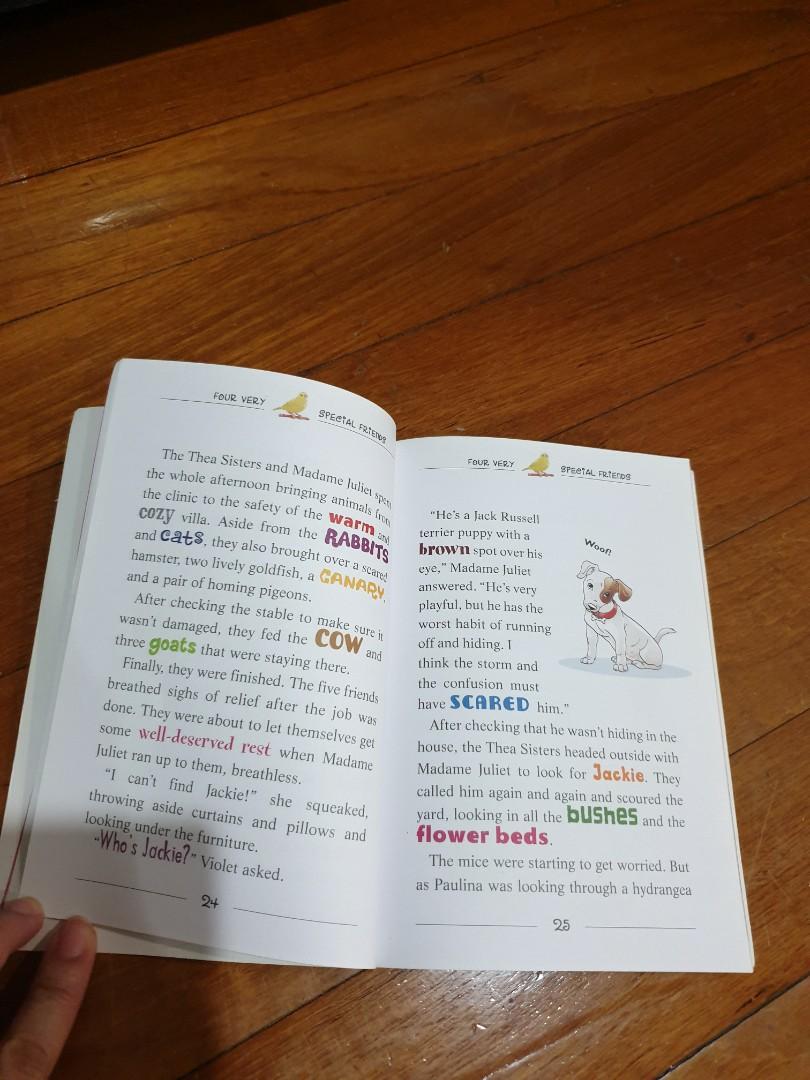 FOUR VERY SPECIAL FRIENDS
The Thea Sisters and Madame Juliet spent
the whole afternoon bringing animals from
the clinic to the safety of the warm and
cozy villa. Aside from the RABBITS
and cats, they also brought over a scared
hamster, two lively goldfish, a CANARY,
and a pair of homing pigeons.
After checking the stable to make sure it
wasn't damaged, they fed the COW and
three goats that were staying there.
Finally, they were finished. The five friends
breathed sighs of relief after the job was
done. They were about to let themselves get
some well-deserved rest when Madame
Juliet ran up to them, breathless.
"I can't find Jackie!" she squeaked,
throwing aside curtains and pillows and
looking under the furniture.
"Who's Jackie?" Violet asked.
24
FOUR VERY SPECIAL FRIENDS
"He's a Jack Russell
terrier puppy with a
brown spot over his
eye," Madame Juliet
answered. "He's very
playful, but he has the
worst habit of running
off and hiding. I
think the storm and
the confusion must
have SCARED him."
Woof!
After checking that he wasn't hiding in the
house, the Thea Sisters headed outside with
Madame Juliet to look for Jackie. They
called him again and again and scoured the
yard, looking in all the bushes and the
flower beds.
The mice were starting to get worried. But
as Paulina was looking through a hydrangea
25